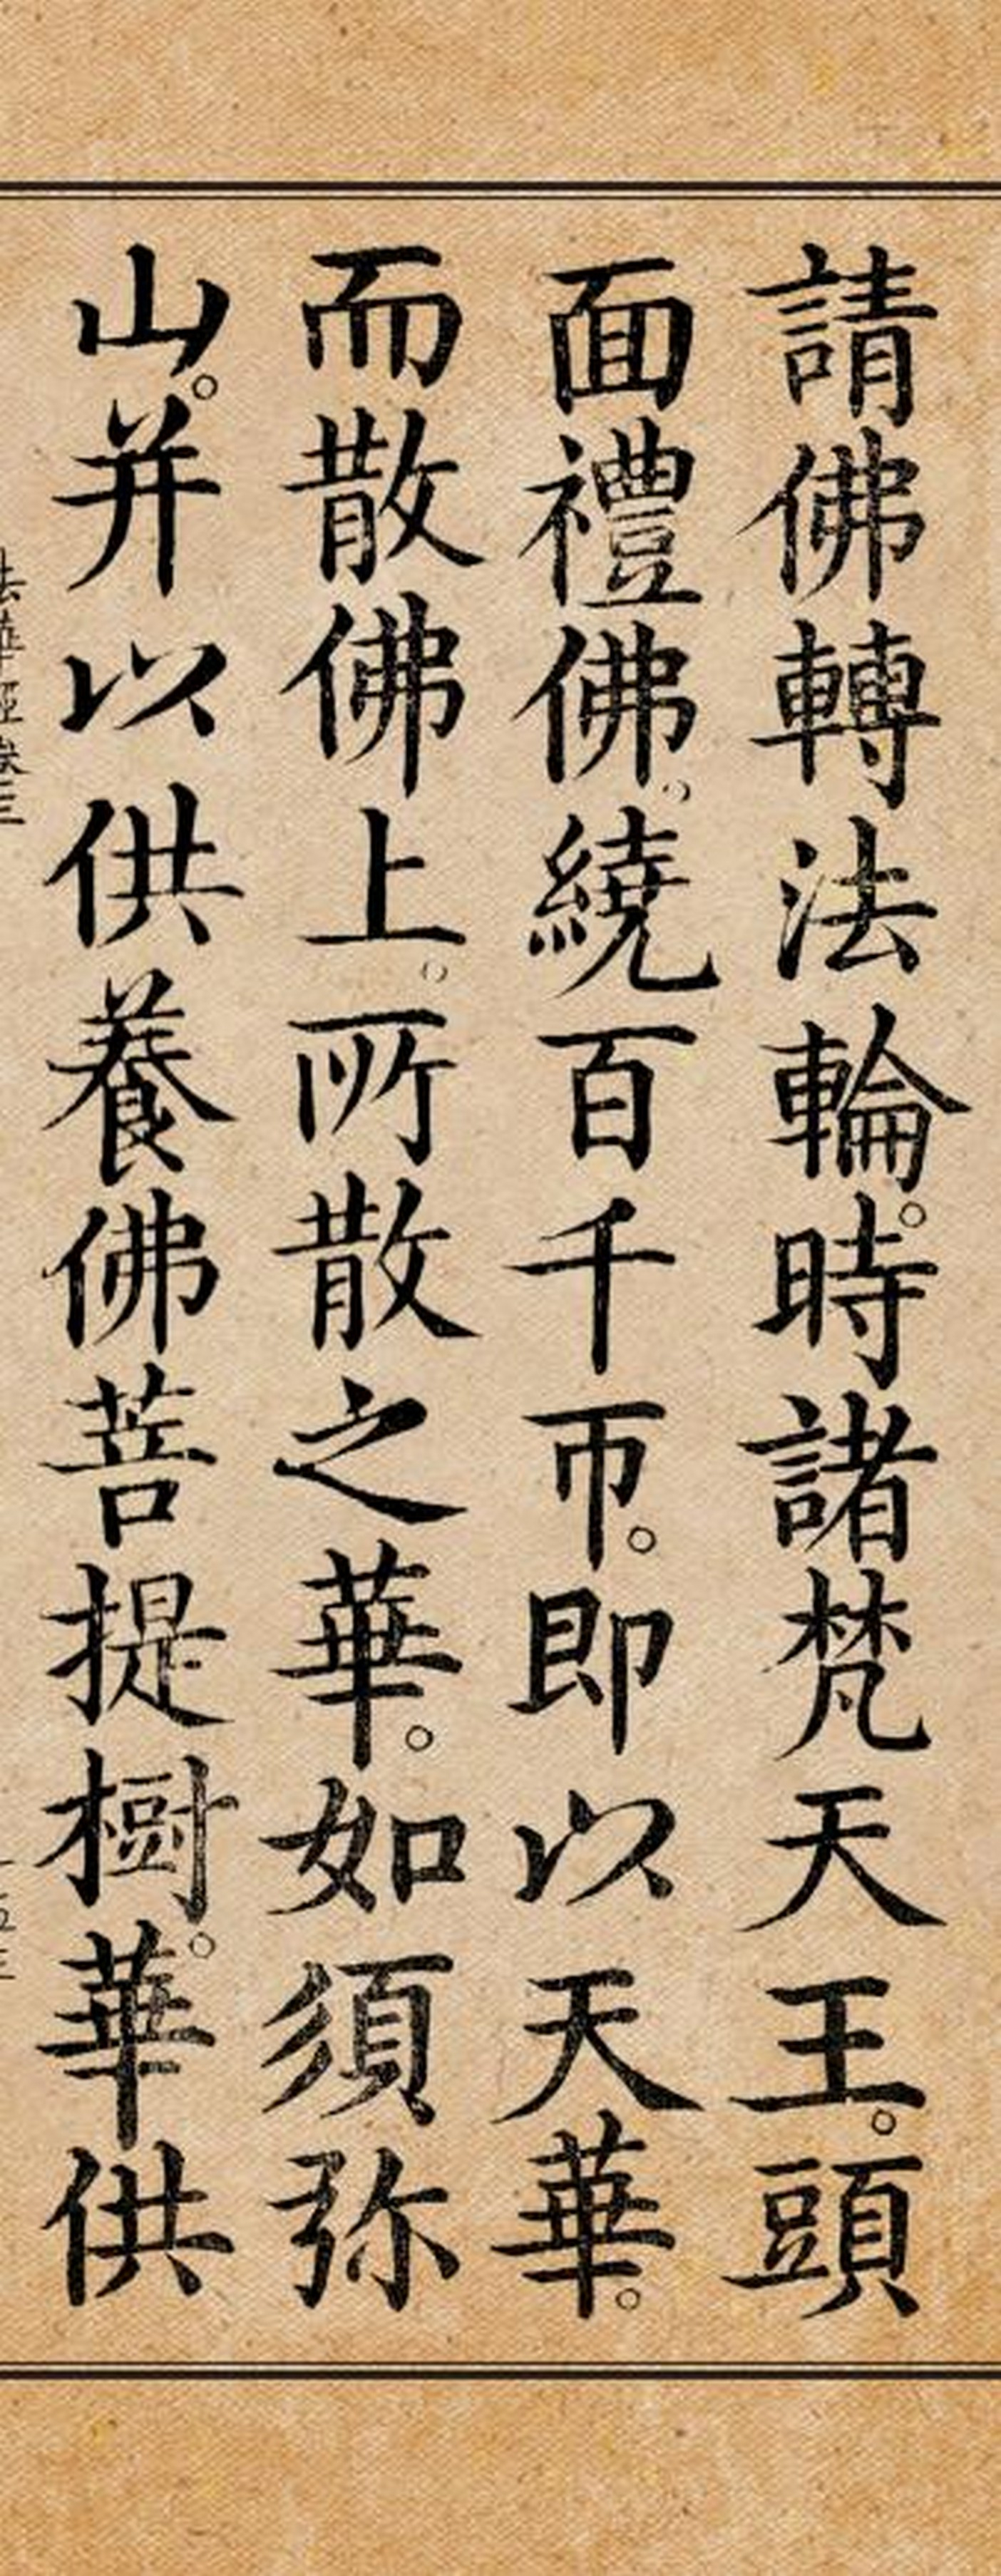 請佛轉法輪。時諸梵天王。頭
面禮佛。繞百千帀。即以天華。
而散佛上。所散之華。如須弥
山。并以供養佛菩提樹。華供